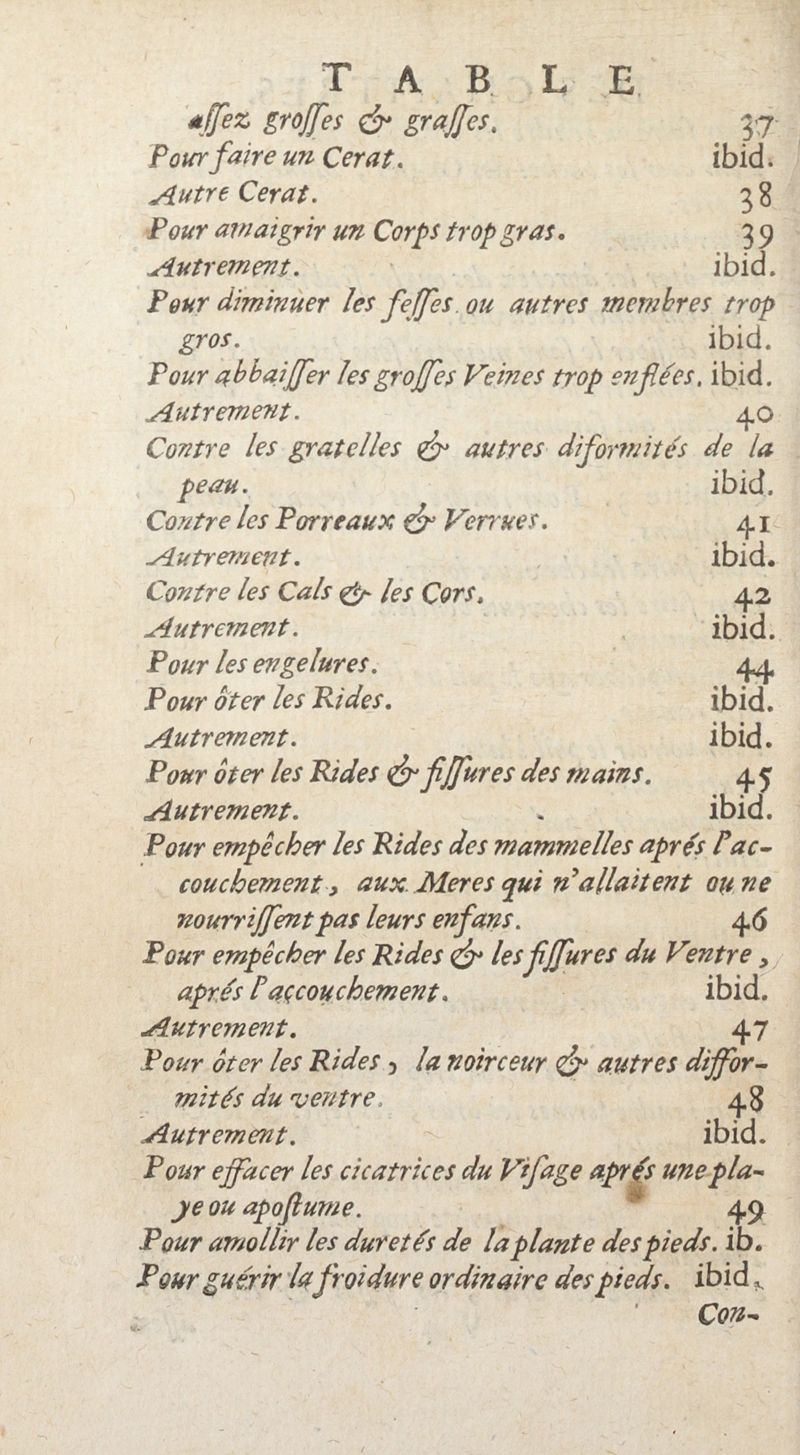 TABLE
aſſez groſſes & graſſes. 37
Pour faire un Cerat. ibid.
Autre Cerat. 38
Pour amaigrir un Corps trop gras. 39
Autrement. ibid.
Pour diminuer les feſſes ou autres membres trop
gros. ibid.
Pour abbaiſſer les groſſes Veines trop enflées. ibid.
Autrement. 40
Contre les gratelles & autres diformités de la
peau. ibid.
Contre les Porreaux & Verrues. 41
Autrement. ibid.
Contre les Cals & les Cors. 42
Autrement. ibid.
Pour les engelures. 44
Pour ôter les Rides. ibid.
Autrement. ibid.
Pour ôter les Rides & fiſſures des mains. 45
Autrement. ibid.
Pour empêcher les Rides des mammelles aprés l'ac-
couchement, aux Meres qui n'allaitent ou ne
nourriſſent pas leurs enfans. 46
Pour empêcher les Rides & les fiſſures du Ventre,
aprés l'accouchement. ibid.
Autrement. 47
Pour ôter les Rides, la noirceur & autres diffor-
mités du ventre. 48
Autrement. ibid.
Pour effacer les cicatrices du Viſage aprés une pla-
ye ou apoſtume. 49
Pour amollir les duretés de la plante des pieds. ib.
Pour guérir la froidure ordinaire des pieds. ibid.
Con-